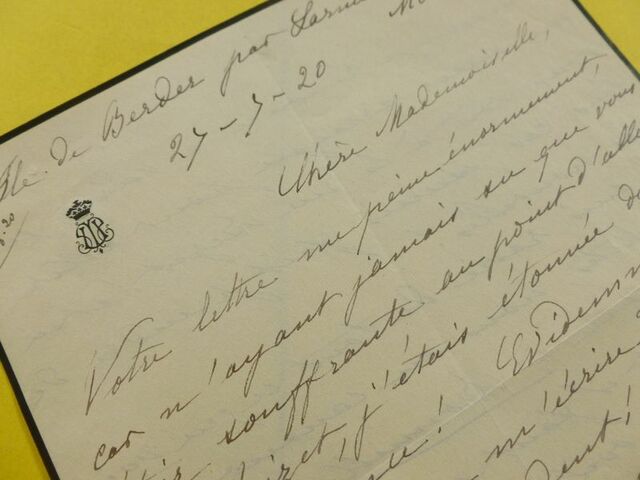 Ile de Berder par Larmor
27-7-20
Chère Mademoiselle,
Votre lettre me peine énormément,
car n'ayant jamais su que vous
souffrante au point d'alle
, j'étais étonnée de
! Evidemm
m'écrire